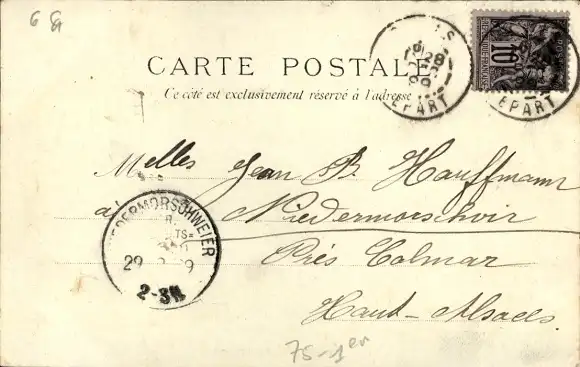 CARTE POSTALE
Ce côté est exclusivement réservé à l'adresse
10
DEPART
EPART
Melles Jean B. Hauffmann
à Niedermorschwir
Près Colmar
Haut-Alsaces
NIEDERMORSCHWEIER
29 9
2-3N.
75-1er